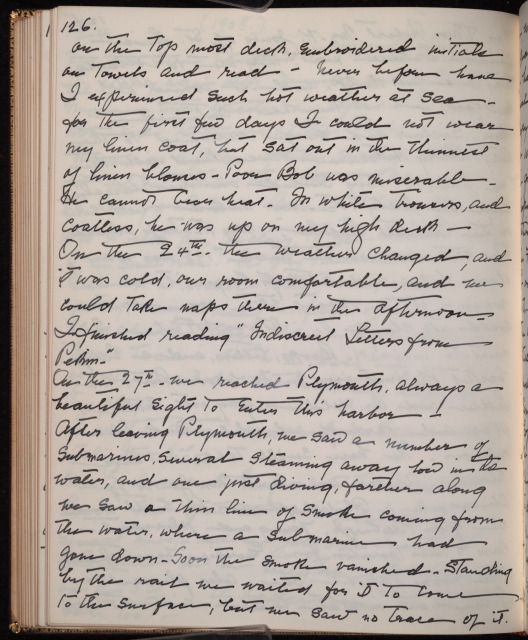 126.
on the top most deck, embroidered initials
on towels and read - never before have
I experienced such hot weather at sea -
for the first few days I could not wear
my linen coat, but sat out in the thinnest
of linen blouses - Poor Bob was miserable -
He cannot bear heat. In white trousers, and
coatless, he was up on my high deck -
On the 24th the weather changed, and
it was cold, our room comfortable, and we
could take naps there in the afternoons
I finished reading "Indiscreet Letters from
Pekin."
On the 27th - we reached Plymouth, always a
beautiful sight to enter this harbor -
After leaving Plymouth, we saw a number of
Submarines, several steaming away low in the
water, and one just diving, farther along
we saw a thin line of smoke coming from
the water, where a submarine had
gone down - Soon the smoke vanished - Standing
by the rail we waited for it to come
to the surface, but we saw no trace of it.